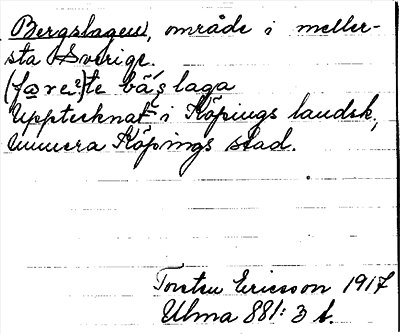 Bergslagen, område i meller-
sta Sverige.
(fa̲re?)te bá̄ṣlaga
Upptecknat i Köpings landsk,
numera Köpings stad.
Torsten Ericsson 1917
Ulma 881:3 b.